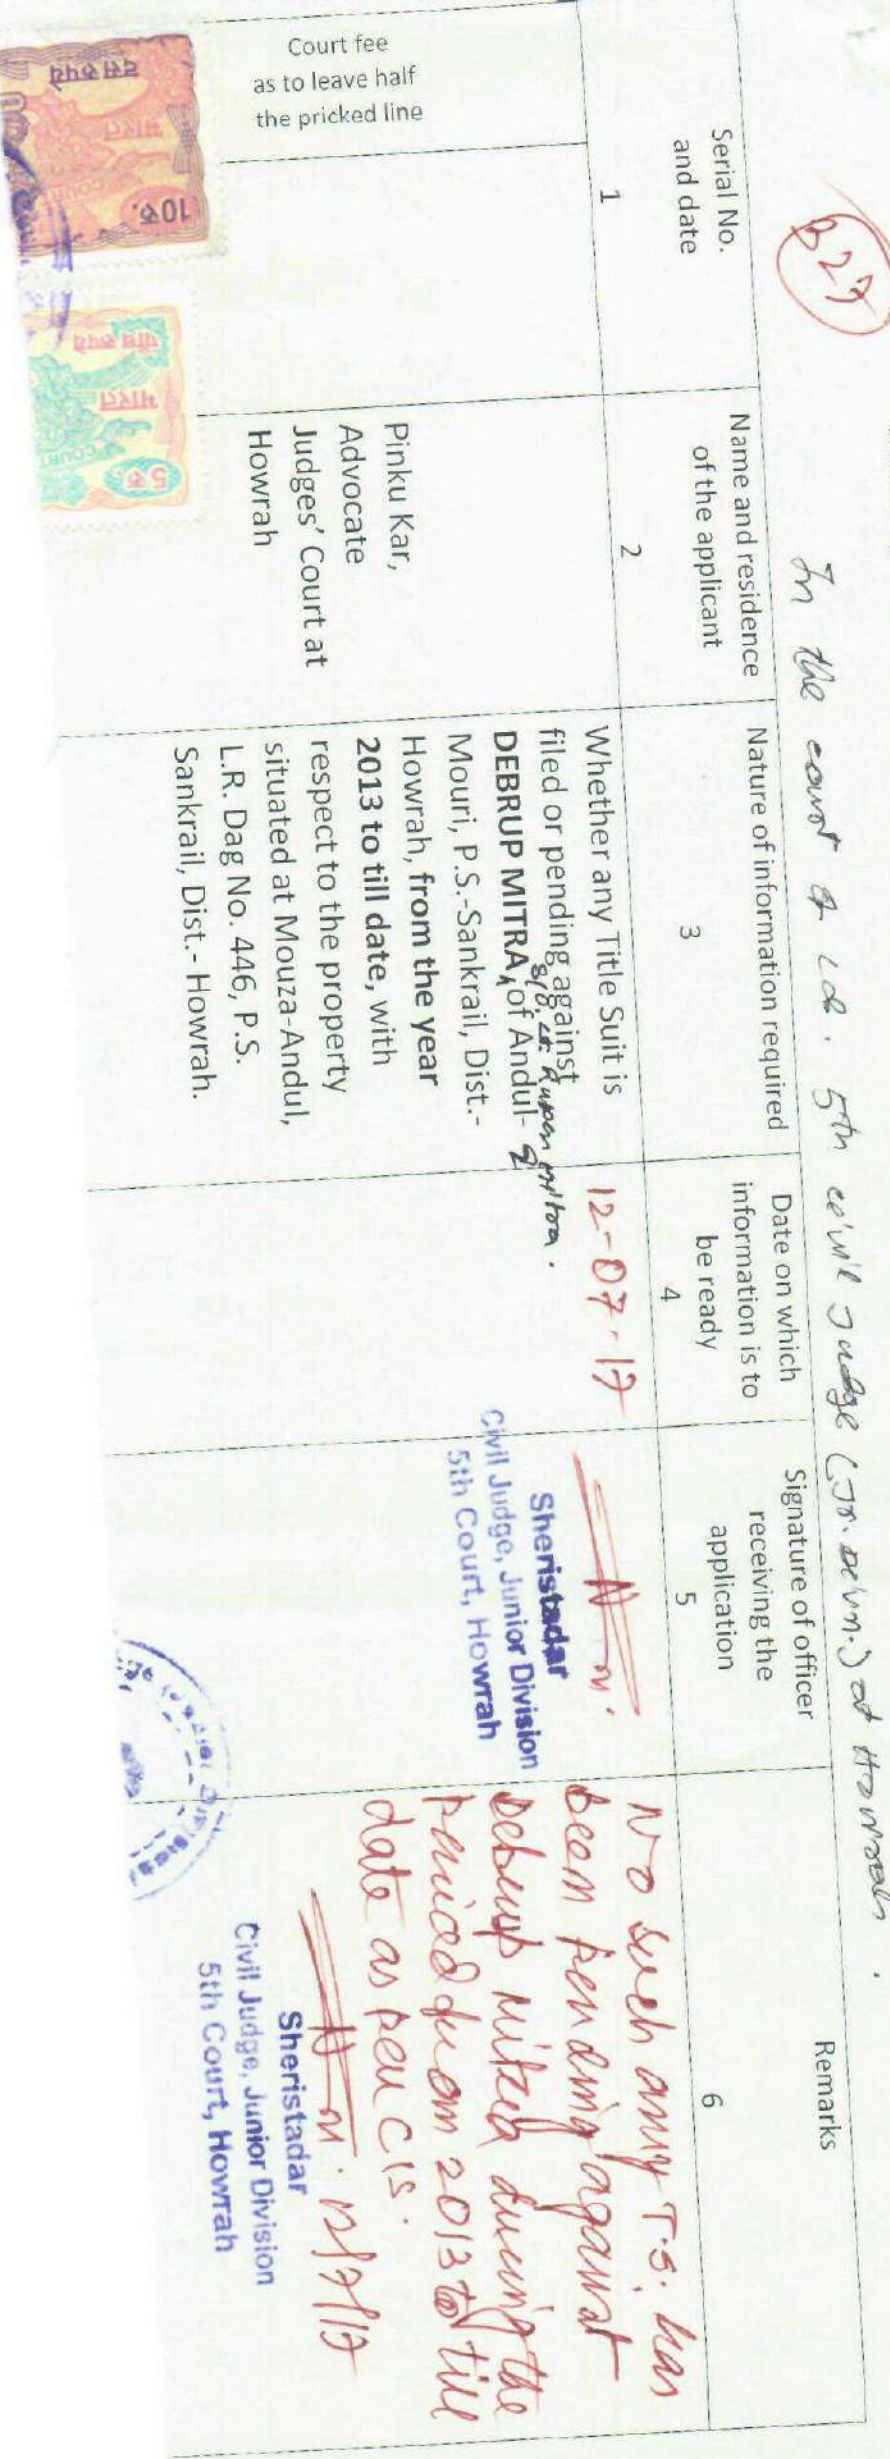 327
In the court of Ld. 5th civil Judge (Jr. Divn.) at Howrah.
Serial No.
and date
Name and residence
of the applicant
Nature of information required
Date on which
information is to
be ready
Signature of officer
receiving the
application
Remarks
1
2
3
4
5
6
Court fee
as to leave half
the pricked line
Pinku Kar,
Advocate
Judges' Court at
Howrah
Whether any Title Suit is
filed or pending against
S/o, Lt. Rupen Mitra.
DEBRUP MITRA, of Andul-
Mouri, P.S.-Sankrail, Dist.-
Howrah, from the year
2013 to till date, with
respect to the property
situated at Mouza-Andul,
L.R. Dag No. 446, P.S.
Sankrail, Dist.- Howrah.
12-07-17
Sheristadar
Civil Judge, Junior Division
5th Court, Howrah
No such any T.S. has
been pending against
Debrup Mitra during the
period from 2013 to till
date as per CIS.
12/7/17
Sheristadar
Civil Judge, Junior Division
5th Court, Howrah
दस रुपये
भारत
10रु.
पाँच रुपये
भारत
COURT
5रु